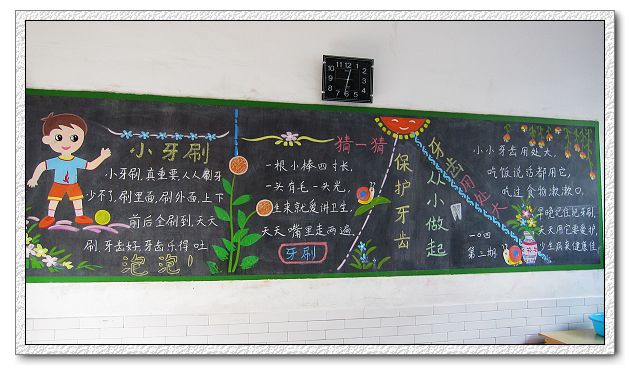 小牙刷
小牙刷,真重要,人人刷牙
少不了,刷里面,刷外面,上下
前后全刷到,天天
刷,牙齿好,牙齿乐得吐
泡泡!
猜一猜
一根小棒四寸长,
一头有毛一头光,
生来就爱讲卫生,
天天嘴里走两遍,
牙刷
保护牙齿
从小做起
牙齿用处大
小小牙齿用处大,
吃饭说话都用它,
吃过食物漱漱口,
早晚记住把牙刷,
天天用它要爱护,
少生病来健康佳,
一〇四
第三期
12
11
10
9
8
7
6
5
4
3
2
1